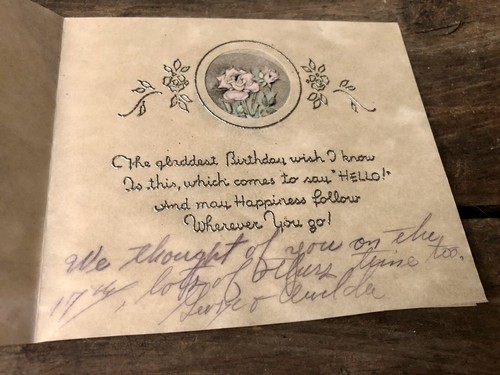 The gladdest Birthday wish I know
Is this, which comes to say "HELLO!"
And may Happiness follow
Wherever You go!
We thought of you on the
17th, lots of other time too.